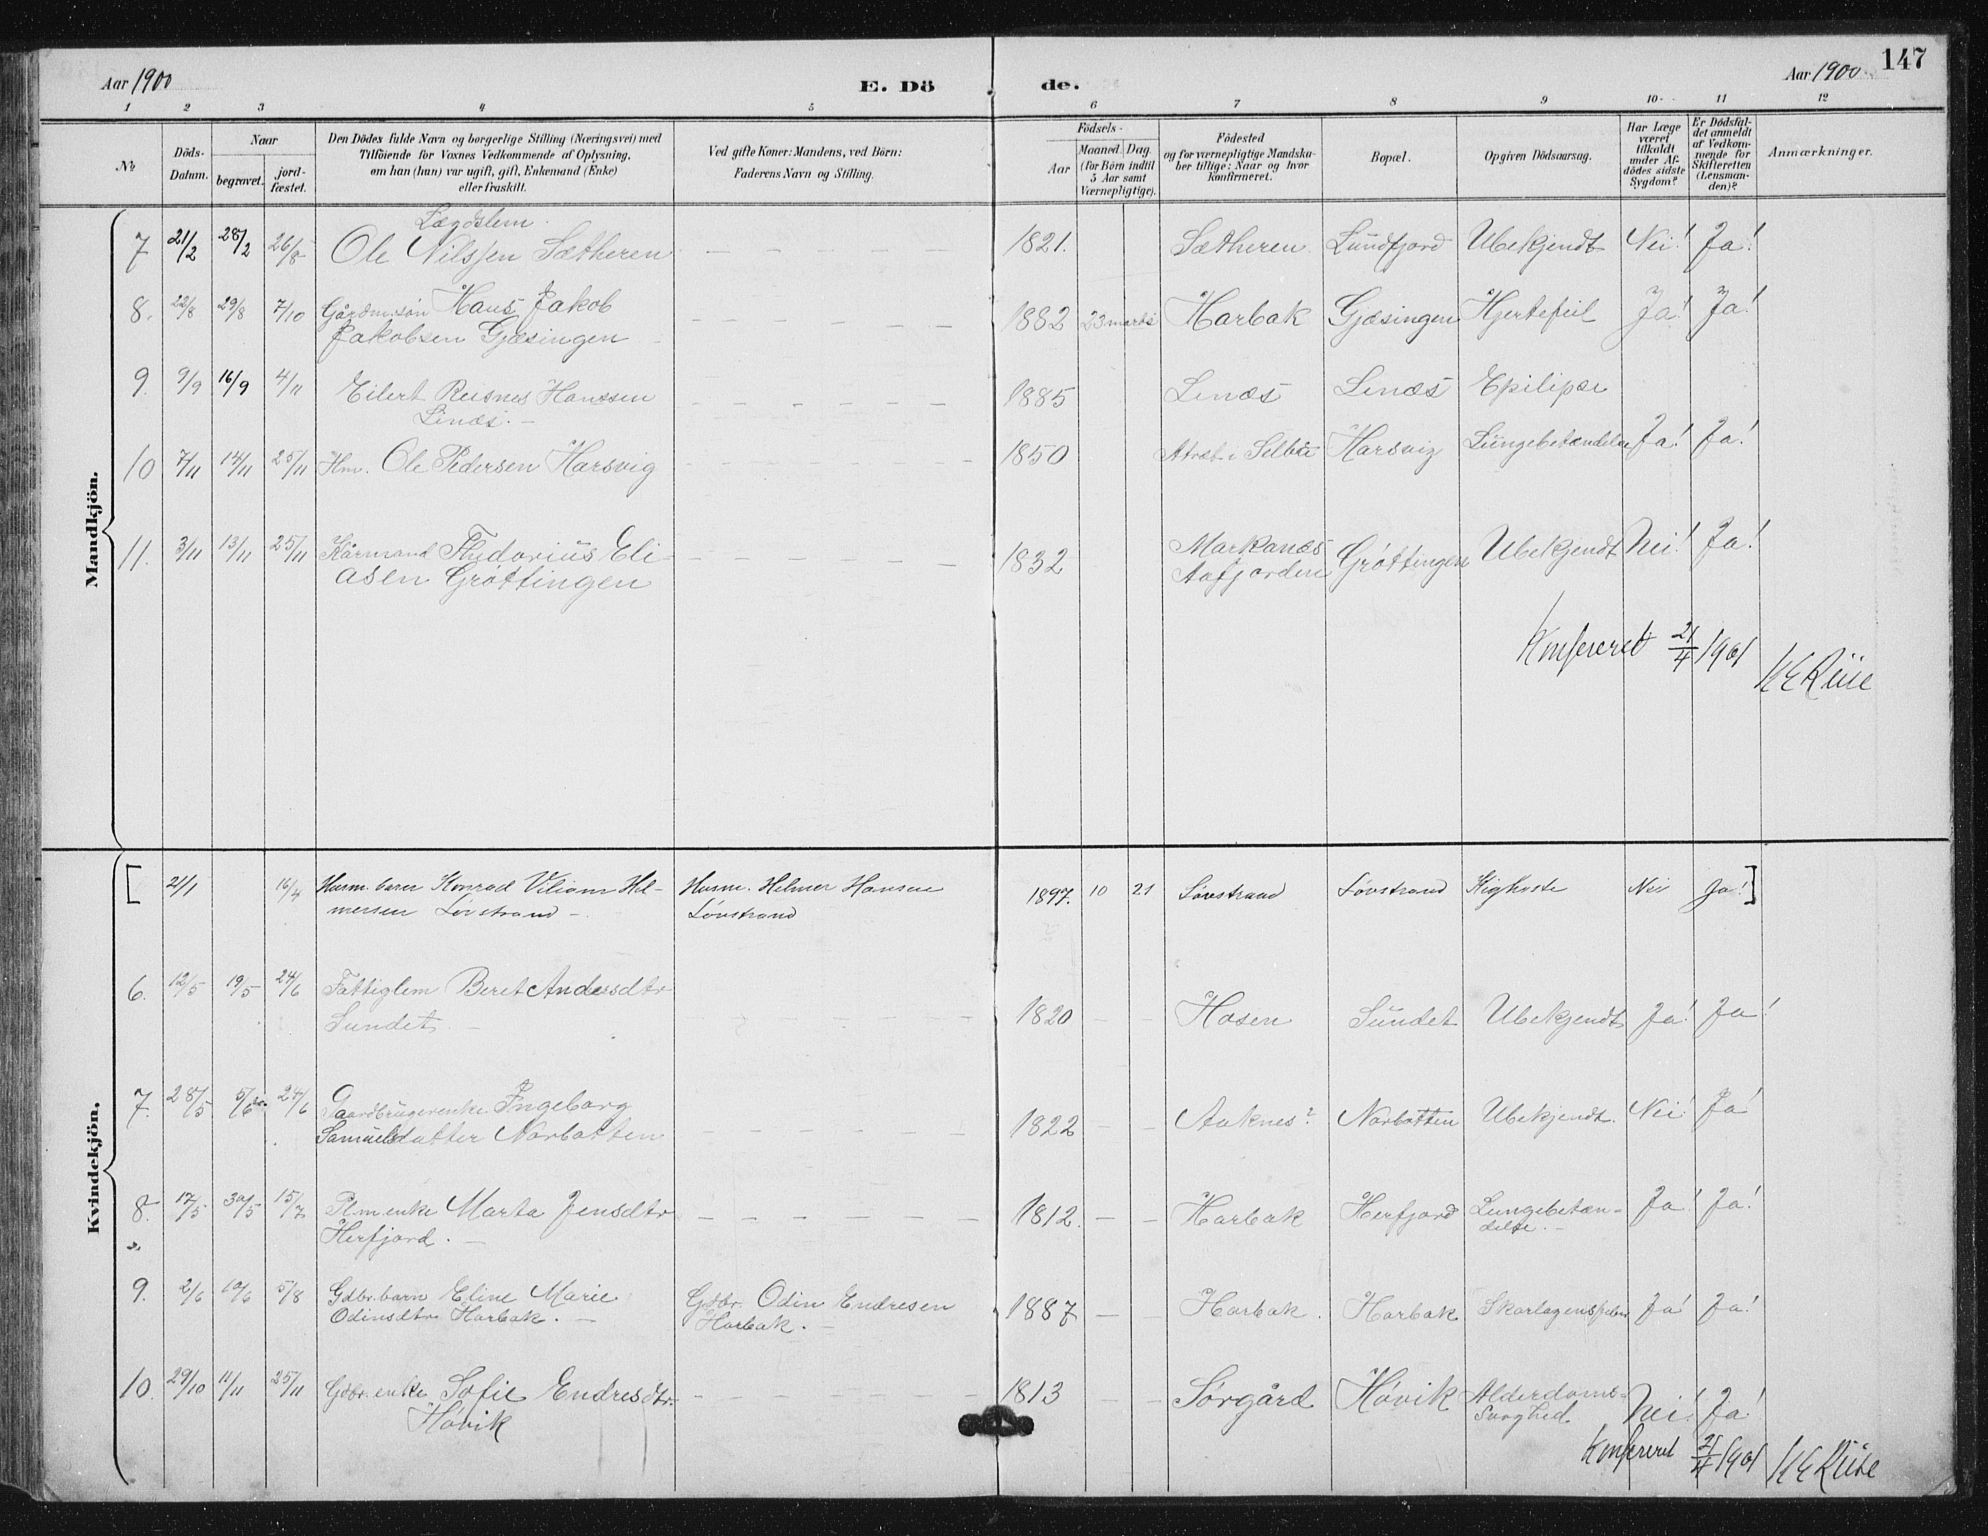 147
Aar 1900 E. Dö de. Aar 1900
1 2 3 4 5 6 7 8 9 10 11 12
№ Döds-Datum. Naar begravet. jordfæstet. Den Dödes fulde Navn og borgerlige Stilling (Næringsvei) med Tilföiende for Voxnes Vedkommende af Oplysning, om han (hun) var ugift, gift, Enkemand (Enke) eller fraskilt. Ved gifte Koner: Mandens, ved Börn: Faderens Navn og Stilling. Födsels- Aar Maaned. Dag. (for Börn indtil 5 Aar samt Værnepligtige). Födested og for værnepligtige Mandskaber tillige: Naar og hvor konfirmeret. Bopæl. Opgiven Dödsaarsag. Har Læge været tilkaldt under Afdödes sidste Sygdom? Er Dödsfaldet anmeldt af Vedkommende for Skifteretten (Lensmanden)? Anmærkninger.
Mandkjön.
Lægdslem
7 21/2 28/2 26/8 Ole Nilssen Sætheren 1821. Sætheren Lundfjord Ubekjendt Nei! Ja!
8. 22/8 29/8 7/10 Gårdm.søn Hans Jakob 1882 23 marts Harbak Gjæsingen Hjertefeil Ja! Ja!
Jakobsen Gjæsingen
9. 9/9 16/9 4/11 Eilert Reisnes Hanssen 1885 Lenæs Lenæs Epilipsi
Linæs.
10 7/11 14/11 25/11 Hm. Ole Pedersen Harsvig 1850 Selbu Harsvig Lungebetændelse Ja! Ja!
11. 3/11 13/11 25/11 Kårmand Thidorius Eli- 1832 Markanæs Grøttingen Ubekjendt Nei! Ja!
asen Grøttingen Aafjorden
Konfereret 21/4 1901
KE Riise
Kvindekjön.
[ 21/1 16/4 Husm. barn Konrad Viliam Hel- Husm. Helmer Hansen 1897. 10 21 Løvstrand Løvstrand Kighoste Nei Ja! ]
mersen Løvstrand Løvstrand
6. 12/5 19/5 24/6 Fattiglem Beret Andersdtr
Sundet. 1820 Hosen Sundet Ubekjendt Ja! Ja!
7. 28/5 5/6 24/6 Gaardbrugerenke Ingeborg
Samuelsdatter Norbotten 1822 Aaknes? Norbotten Ubekjendt. Nei! Ja!
8. 17/5 30/5 15/7 Plm. enke Marta Jensdtr 1812. Harbak Herfjord Lungebetæn- Ja! Ja!
Herfjord. delse.
9. 2/6 10/6 5/8 Gdbr. barn Eline Marie Gdbr. Odin Endresen 1887 Harbak. Harbak Skarlagensfeber Ja! Ja!
Odinsdtr Harbak. Harbak.
10. 29/10 11/11 25/11 Gdbr. enke Sofie Endresdtr. 1813 Sørgård Høvik Alderdoms- Nei! Ja!
Høvik Svaghed
Konfereret 21/4 1901 KE Riise